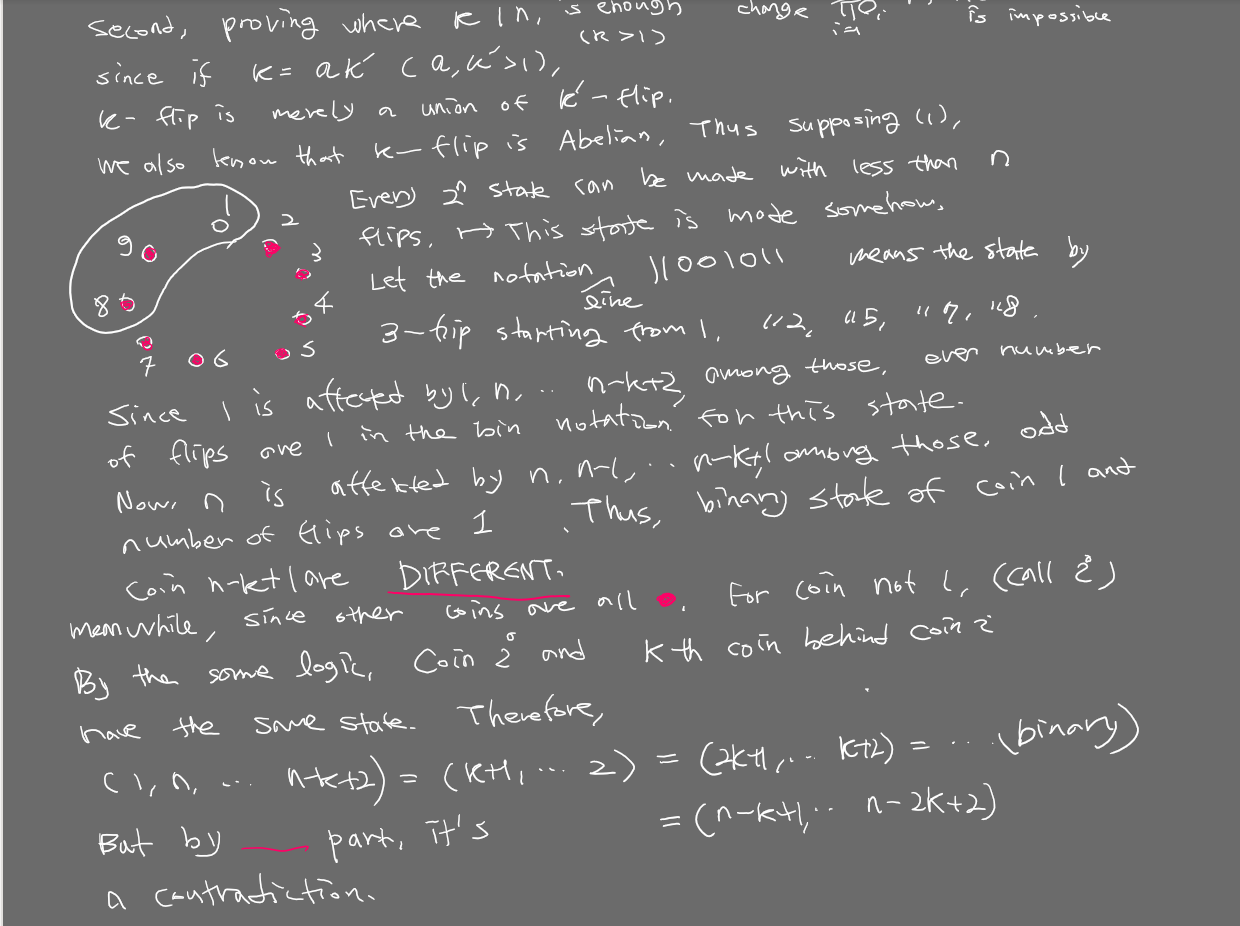 second, proving where k | n, is enough change is impossible
(k > 1) i=1
since if k = ak′ (a, k′>1),
k- flip is merely a union of k′-flip.
we also know that k- flip is Abelian. Thus supposing (1),
Every 2ⁿ state can be made with less than n
flips. ↦ This state is made somehow.
Let the notation 11001011 means the state by
3-flip starting from 1, "2, "5, "7, "8.
1
2
3
4
5
6
7
8
9
Since 1 is affected by 1, n, .. n-k+2, among those, even number
of flips are 1 in the bin notation for this state.
Now, n is affected by n, n-1, ... n-k+1 among those, odd
number of flips are 1. Thus, binary state of coin 1 and
Coin n-k+1 are DIFFERENT.
meanwhile, since other coins are all . For coin not 1, (call i)
By the same logic, Coin i and k-th coin behind coin i
have the same state. Therefore,
(1, n, ... n-k+2) = (k+1, ... 2) = (2k+1, ... k+2) = ... (binary)
= (n-k+1, .. n-2k+2)
But by part, it's
a contradiction.